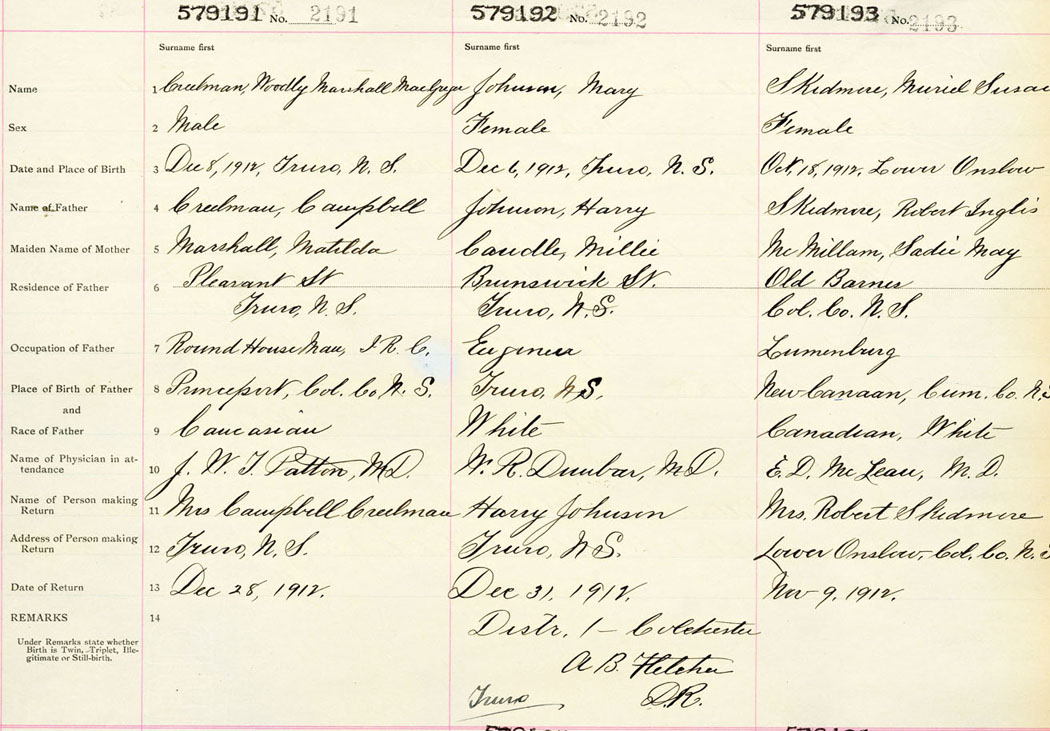 579191 No. 2191 579192 No. 2192 579193 No. 2193
Surname first Surname first Surname first
Name 1 Creelman, Woodly Marshall MacGregor Johnson, Mary Skidmore, Muriel Susan
Sex 2 Male Female Female
Date and Place of Birth 3 Dec 8, 1912, Truro, N. S. Dec 6, 1912, Truro, N. S. Oct, 18, 1912, Lower Onslow
Name of Father 4 Creelman, Campbell Johnson, Harry Skidmore, Robert Inglis
Maiden Name of Mother 5 Marshall, Matilda Caudle, Millie McMillam, Sadie May
Residence of Father 6 Pleasant St Brunswick St. Old Barnes
Truro, N. S. Truro, N. S. Col. Co. N. S.
Occupation of Father 7 Round House Man, I. R. C. Engineer Lumenburg
Place of Birth of Father 8 Princeport, Col. Co N. S. Truro, N S. New Canaan, Cum. Co. N. S
and
Race of Father 9 Caucasian White Canadian, White
Name of Physician in at-
tendance 10 J. W. T. Patton, M D. W. R. Dunbar, M. D. E. D. McLean, M. D.
Name of Person making
Return 11 Mrs Campbell Creelman Harry Johnson Mrs. Robert Skidmore
Address of Person making
Return 12 Truro, N. S. Truro, N S. Lower Onslow, Col. Co. N. S
Date of Return 13 Dec 28, 1912. Dec 31, 1912. Nov 9, 1912.
REMARKS 14
Distr. 1 – Colchester
Under Remarks state whether
Birth is Twin, Triplet, Ille-
gitimate or Still-birth.
A B. Fletcher
Truro D.R.